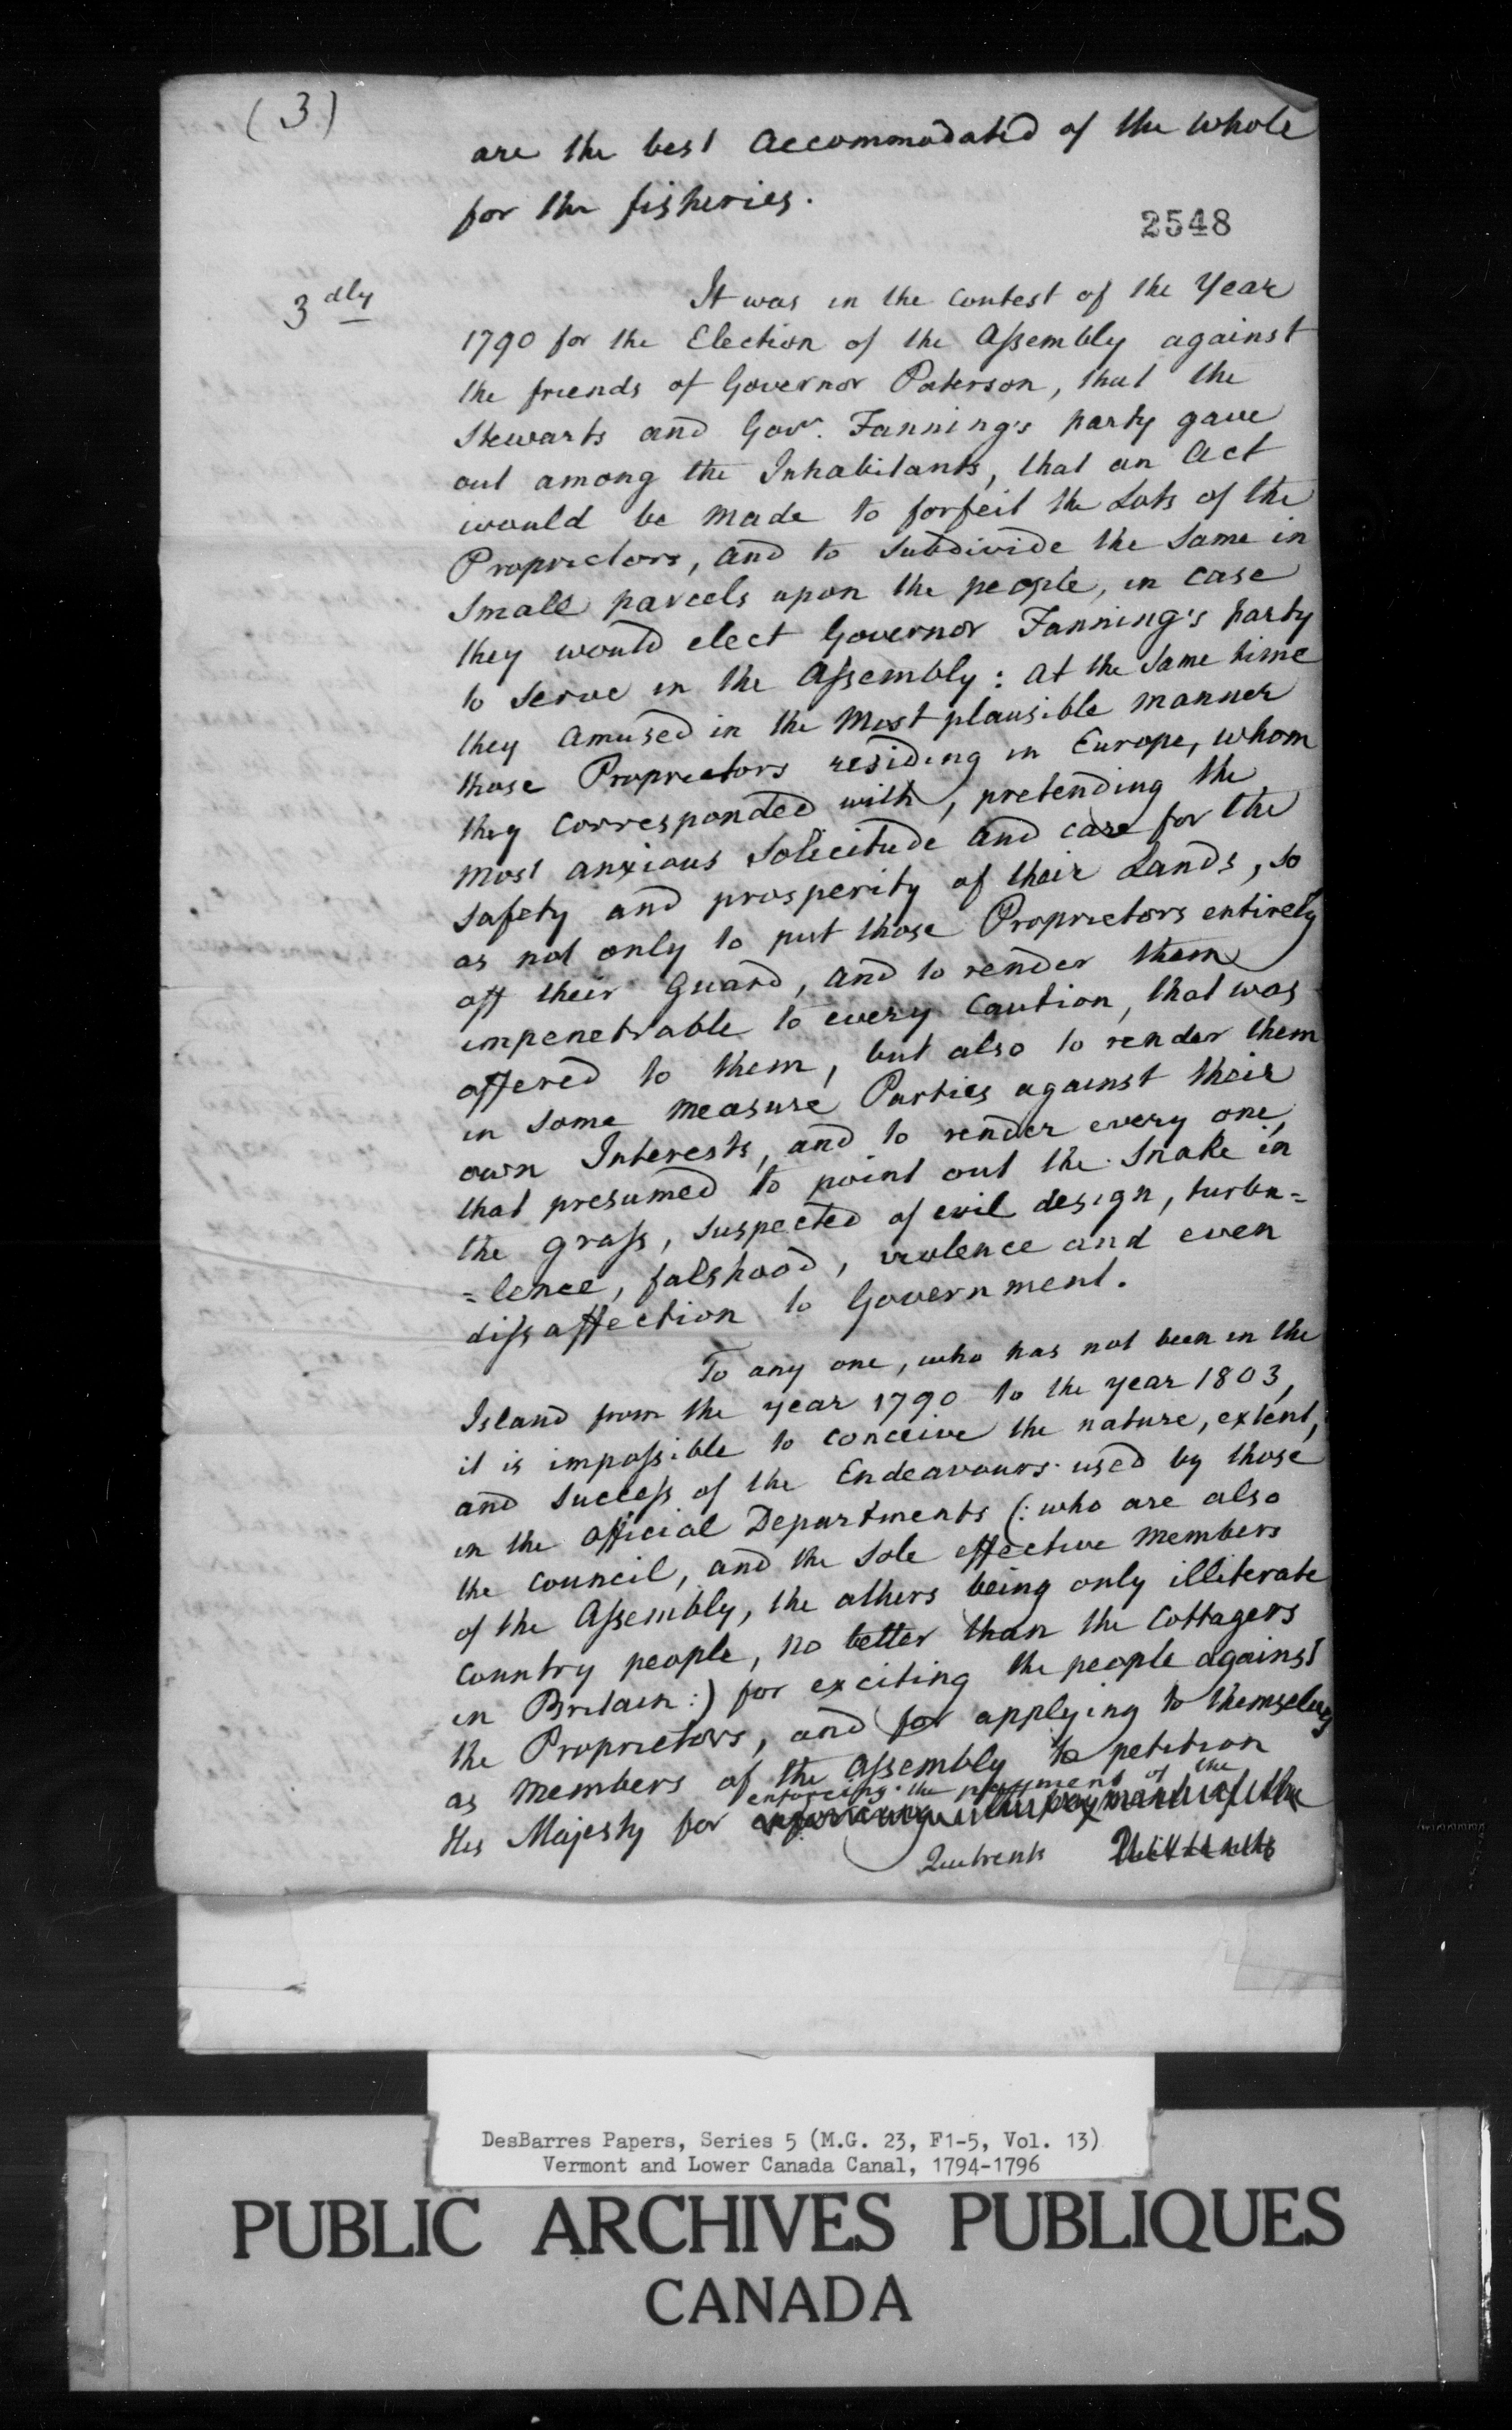 (3)
are the best accommodated of the whole
for the fisheries.
2548
3dly
It was in the Contest of the Year
1790 for the Election of the Assembly against
the friends of Governor Paterson, that the
Stewarts and Govr. Fanning's party gave
out among the Inhabitants, that an Act
would be made to forfeit the Lots of the
Proprietors, and to subdivide the same in
small parcels upon the people, in case
they would elect Governor Fanning's party
to serve in the Assembly: at the same time
they amused in the most plausible manner
those Proprietors residing in Europe, whom
they corresponded with, pretending the
most anxious solicitude and care for the
safety and prosperity of their Lands, so
as not only to put those Proprietors entirely
off their Guard, and to render them
impenetrable to every Caution, that was
offered to them, but also to render them
in some measure Parties against their
own Interests, and to render every one,
that presumed to point out the Snake in
the grass, suspected of evil design, turbu=
=lence, falshood, violence and even
dissaffection to Government.
To any one, who has not been in the
Island from the year 1790 to the year 1803,
it is impossible to conceive the nature, extent,
and success of the Endeavours used by those
in the official Departments (: who are also
the Council, and the sole effective members
of the Assembly, the others being only illiterate
Country people, no better than the Cottagers
in Britain :) for exciting the people against
the Proprietors, and for applying to themselves
as members of the Assembly to petition
enforcing the payment of the
His Majesty for enforcing the payment of the
Quitrents
DesBarres Papers, Series 5 (M.G. 23, F1-5, Vol. 13)
Vermont and Lower Canada Canal, 1794-1796
PUBLIC ARCHIVES PUBLIQUES
CANADA